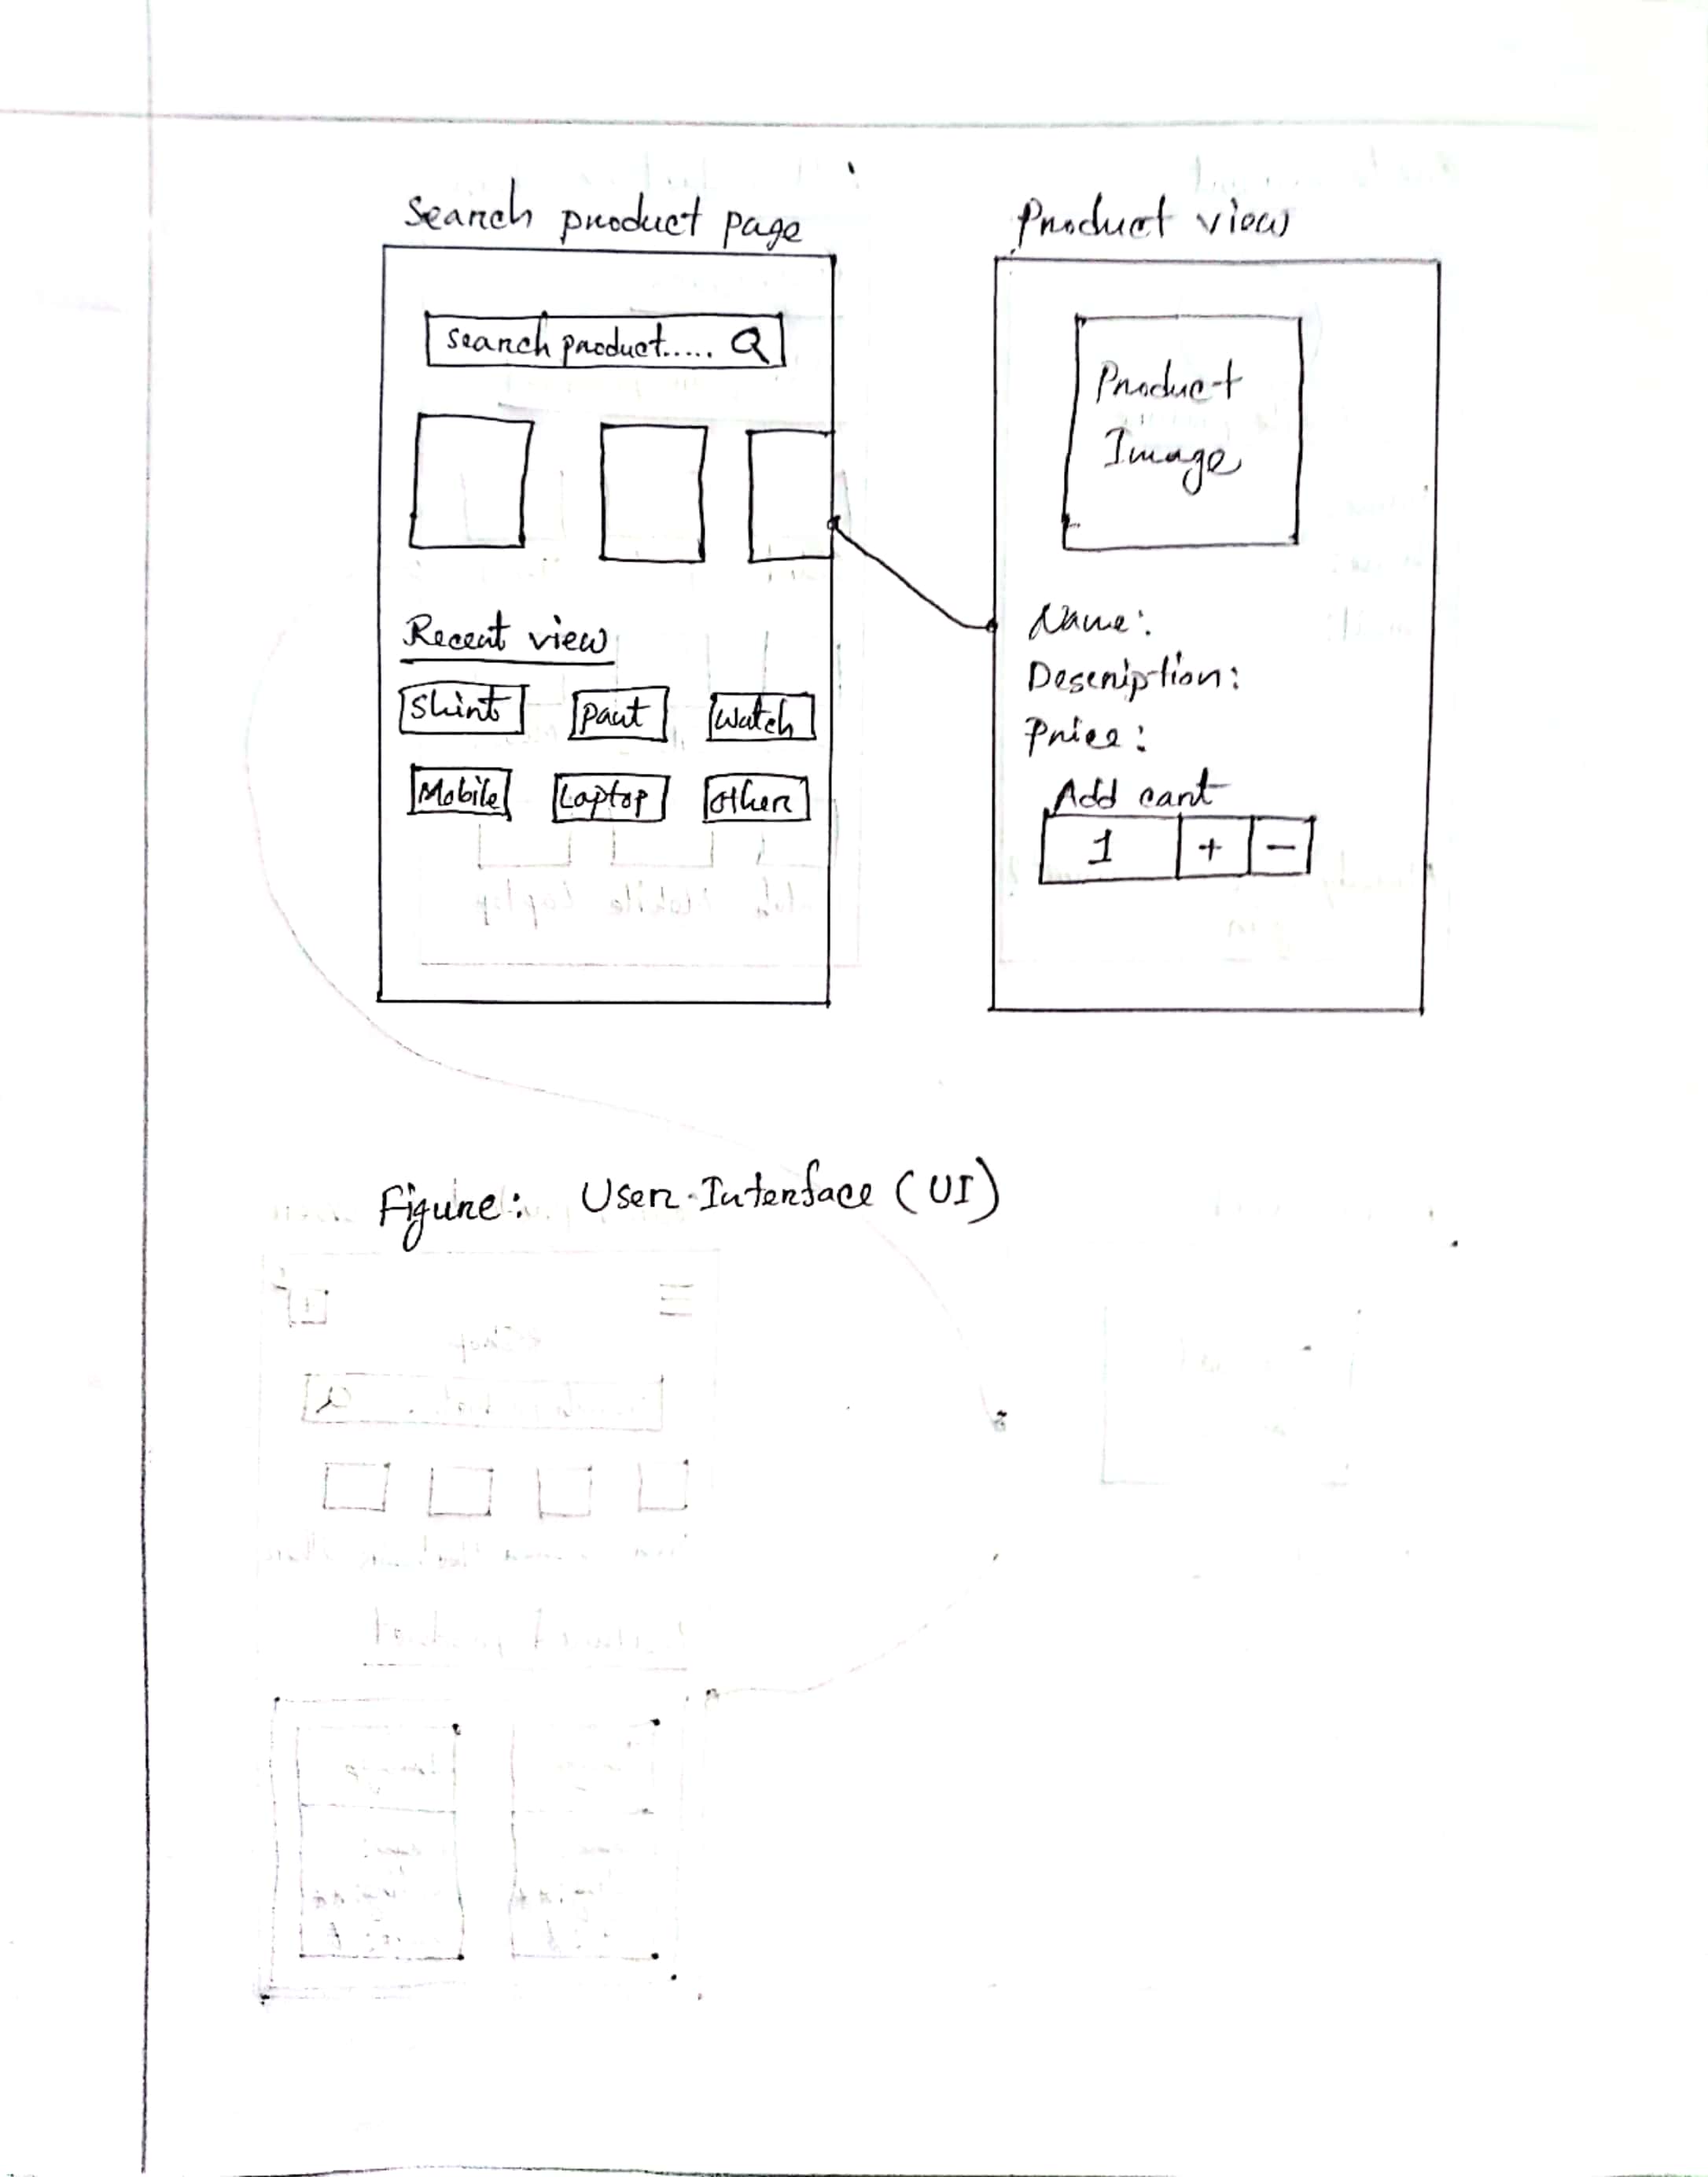 Search product page
search product..... 
Recent view
Shirt Pant Watch
Mobile Laptop other
Product view
Product
Image
Name:
Description:
Price:
Add cart
1 + -
Figure: User Interface (UI)